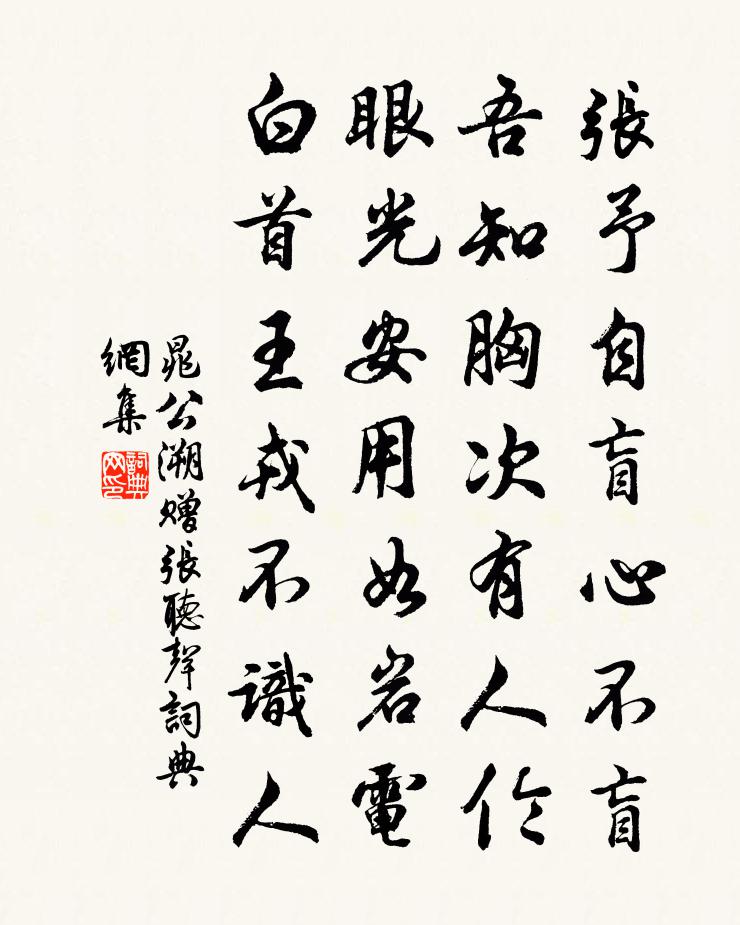 張予自盲心不盲
吾知胸次有人伦
眼光安用如岩電
白首王戎不識人
晁公溯贈張聽聲詞典
網集
詞典
网印